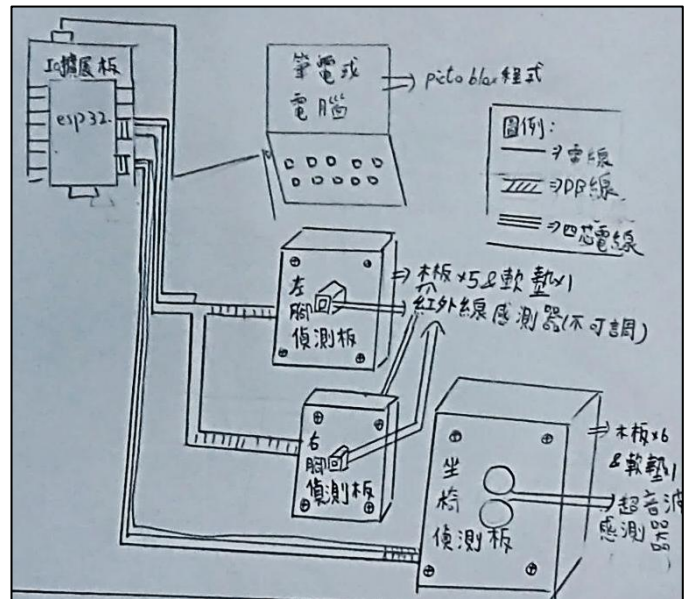 IO擴展板
esp32
筆電或
電腦
picto blox程式
圖例:
電線
DB線
四芯電線
左
腳
偵測板
木板×5&軟墊×1
紅外線感測器(不可調)
右
腳
偵測板
坐
椅
偵測板
木板×6
&軟墊×1
超音波
感測器